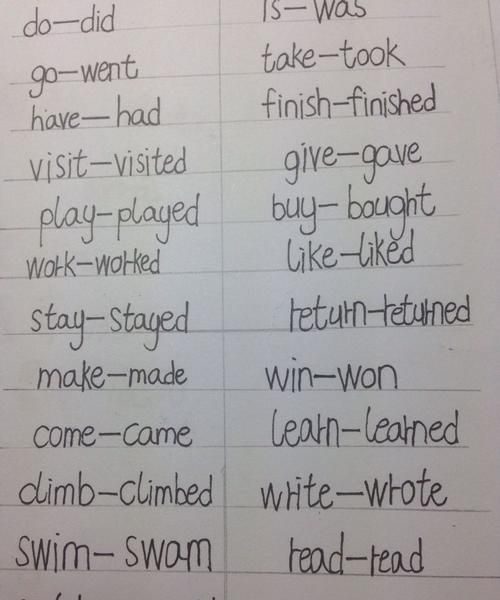 do—did is—was
go—went take—took
have—had finish—finished
visit—visited give—gave
play—played buy—bought
work—worked like—liked
stay—stayed return—returned
make—made win—won
come—came learn—learned
climb—climbed write—wrote
swim—swam read—read